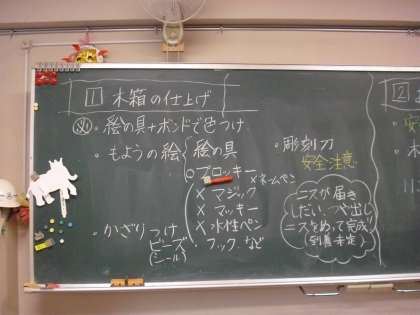 1 木箱の仕上げ
必・絵の具+ボンドで色つけ
・もようの絵 絵の具
○プロッキー
×ネームペン
×マジック
×マッキー
×水性ペン
・かざりつけ
ビーズ
(シール)
フック など
・彫刻刀
安全注意
ニスが届き
しだい、つや出し
ニスをぬって完成!
2